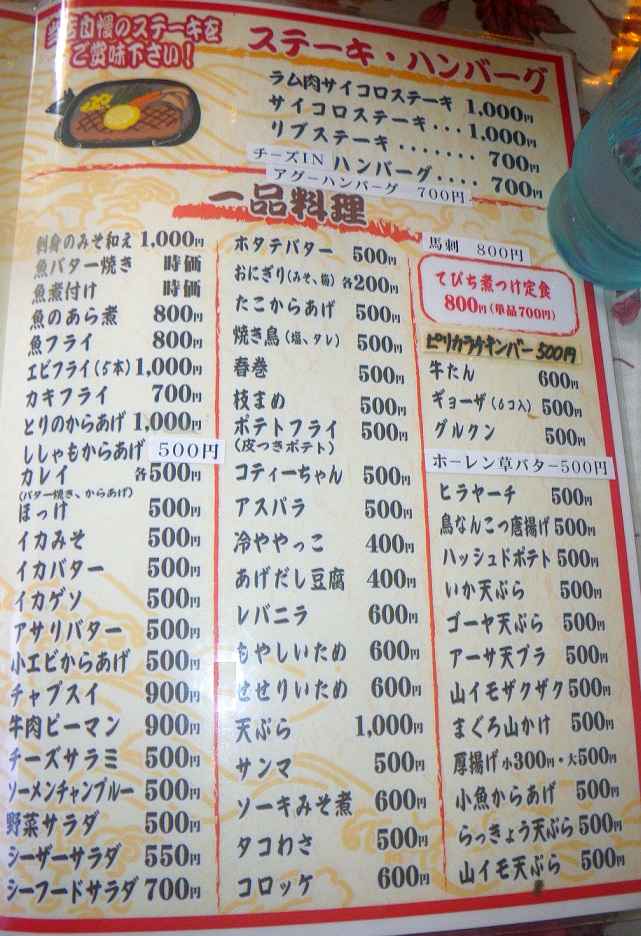 当店自慢のステーキを
ご賞味下さい!
ステーキ・ハンバーグ
ラム肉サイコロステーキ 1,000円
サイコロステーキ・・・1,000円
リブステーキ・・・・・・・ 700円
チーズIN ハンバーグ・・・・ 700円
アグーハンバーグ 700円
一品料理
刺身のみそ和え 1,000円
魚バター焼き 時価
魚煮付け 時価
魚のあら煮 800円
魚フライ 800円
エビフライ(5本)1,000円
カキフライ 700円
とりのからあげ 1,000円
ししゃもからあげ 500円
カレイ 各500円
(バター焼き、からあげ)
ほっけ 500円
イカみそ 500円
イカバター 500円
イカゲソ 500円
アサリバター 500円
小エビからあげ 500円
チャプスイ 900円
牛肉ピーマン 900円
チーズサラミ 500円
ソーメンチャンプルー 500円
野菜サラダ 500円
シーザーサラダ 550円
シーフードサラダ 700円
ホタテバター 500円
おにぎり(みそ、梅) 各200円
たこからあげ 500円
焼き鳥(塩、タレ) 500円
春巻 500円
枝まめ 500円
ポテトフライ 500円
(皮つきポテト)
コティーちゃん 500円
アスパラ 500円
冷ややっこ 400円
あげだし豆腐 400円
レバニラ 600円
もやしいため 600円
せせりいため 600円
天ぷら 1,000円
サンマ 500円
ソーキみそ煮 600円
タコわさ 500円
コロッケ 600円
馬刺 800円
てびち煮つけ定食
800円(単品700円)
ピリカラウインナー 500円
牛たん 600円
ギョーザ(6コ入) 500円
グルクン 500円
ホーレン草バター500円
ヒラヤーチ 500円
鳥なんこつ唐揚げ 500円
ハッシュドポテト 500円
いか天ぷら 500円
ゴーヤ天ぷら 500円
アーサ天プラ 500円
山イモザクザク 500円
まぐろ山かけ 500円
厚揚げ 小300円・大500円
小魚からあげ 500円
らっきょう天ぷら 500円
山イモ天ぷら 500円